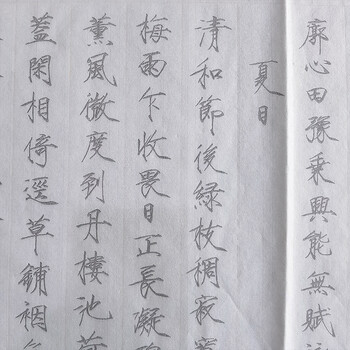 廓心田豫乘興能無賦詠
夏日
清和節後綠枝稠寂寞
梅雨乍收畏日正長凝
薰風微度到丹樓池荷
蓋閑相倚逕草鋪裀